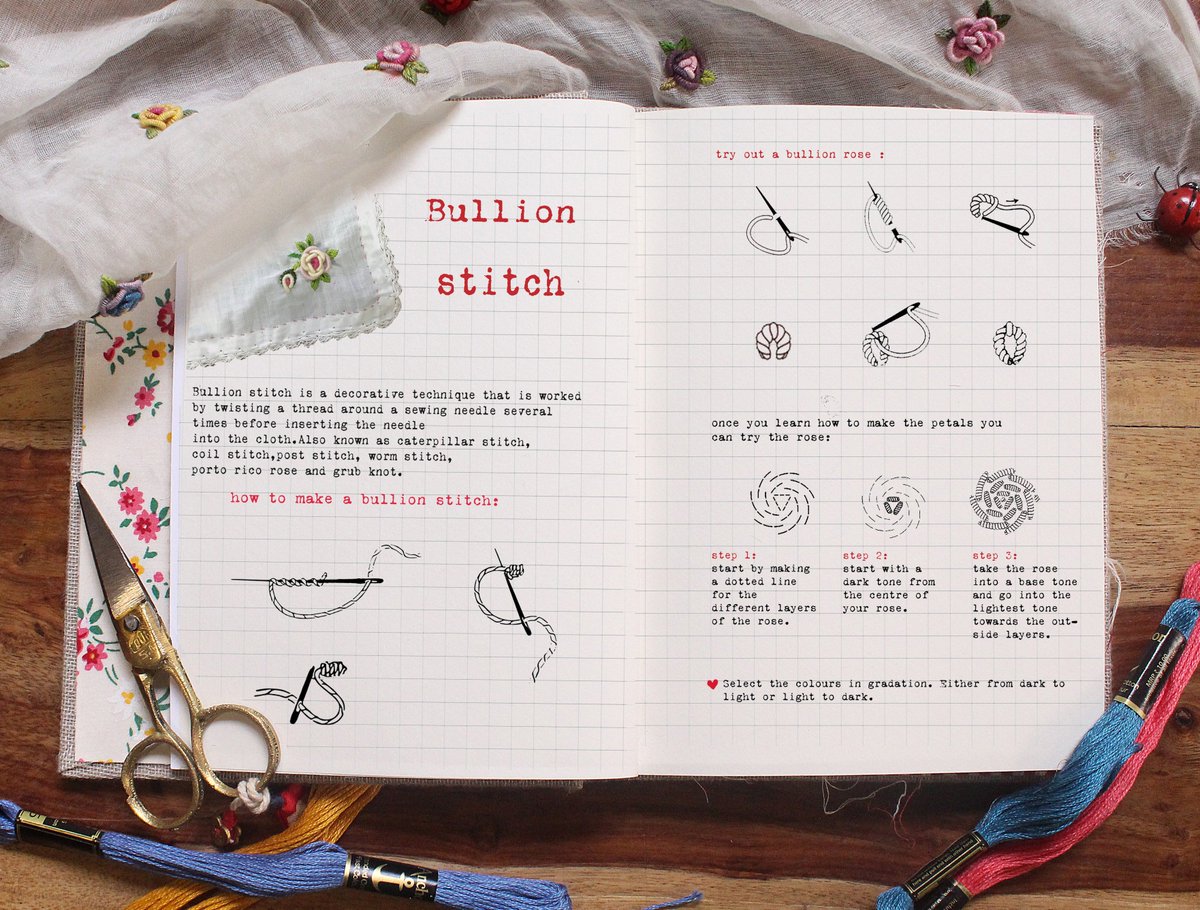 Bullion
stitch
Bullion stitch is a decorative technique that is worked
by twisting a thread around a sewing needle several
times before inserting the needle
into the cloth.Also known as caterpillar stitch,
coil stitch,post stitch, worm stitch,
porto rico rose and grub knot.
how to make a bullion stitch:
try out a bullion rose :
once you learn how to make the petals you
can try the rose:
step 1:
start by making
a dotted line
for the
different layers
of the rose.
step 2:
start with a
dark tone from
the centre of
your rose.
step 3:
take the rose
into a base tone
and go into the
lightest tone
towards the out-
side layers.
Select the colours in gradation. Either from dark to
light or light to dark.